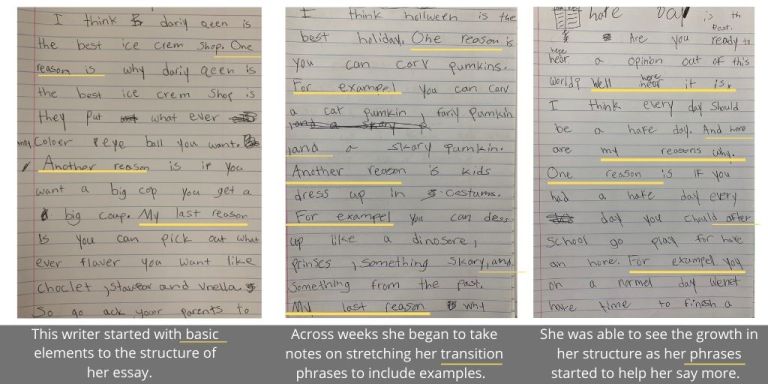 I think dariy qeen is
the best ice crem shop. One
reason is why dariy qeen is
the best ice crem shop is
they put what ever
Coloer eye ball you want.
Another reason is if you
want a big cop you get a
big coup. My last reason
Is you can pick out what
ever flaver you want like
choclet, and vnella.
So go ack your parents to
I think hollween is the
best holiday. One reason is
you can carv pumkins.
For exampel you can carv
a cat pumkin, fariy pumkin
and a skary pumkin.
Another reason is kids
dress up in costums.
For exampel you can dess
up like a dinosore,
prinses, something skary, and
something from the past.
My last reason is why
hafe Day is th
best.
Are you ready to
hear a opinon out of this
world? Well here it is,
I think every day should
be a hafe day. And here
are my reasons why.
One reason is if you
had a hafe day every
day you chould after
school go play for hafe
an hore. For exampel you
on a normel day
have time to finish a
This writer started with basic
elements to the structure of
her essay.
Across weeks she began to take
notes on stretching her transition
phrases to include examples.
She was able to see the growth in
her structure as her phrases
started to help her say more.